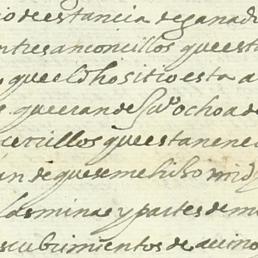 io de estancia de ganad
entres anconcillos que esta
que el dho sitio esta a
que eran de Juº ochoa de
cerrillos que estan en e
an de que se me hiso md
las minas y partes de m
scubrimientos de